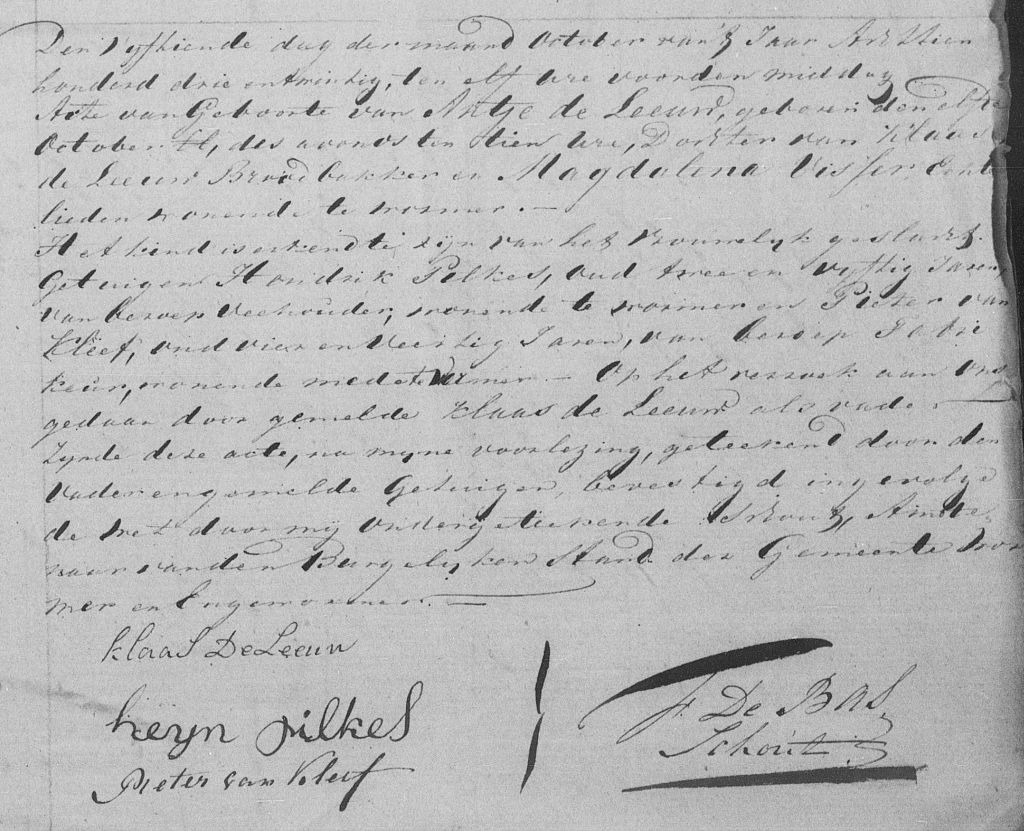 Den Vyftiende dag der maand October van't Jaar Achttien
honderd drie en twintig, ten elf ure voorden middag
Acte van Geboorte van Antje de Leeuw, geboren den elfde
October ll, des avonds ten tien ure, Dochter van Klaas
de Leeuw Broodbakker en Magdalena Visser Echte
lieden wonende te wormer. —
Het kind is erkend te zijn van het vrouwelyk geslacht.
Getuigen Hendrik Pilkes, oud twee en vyftig Jaren,
van beroep Veehouder, wonende te wormer en Pieter van
Kleef, oud vier en Veertig Jaren, van beroep Fabri
keur, wonende mede te Wormer. — Op het verzoek aan ons
gedaan door gemelde Klaas de Leeuw als vader
Zynde deze acte, na myne voorlezing, geteekend door den
Vader en gemelde Getuigen, bevestigd ingevolge
de wet door mij ondergeteekende Schout, Ambte
naar van den Burgelyken Stand der Gemeente Wor
mer en Engewormer. —
Klaas De Leeuw
heyn pilkes
Pieter van Kleef
F. De BAS
Schout